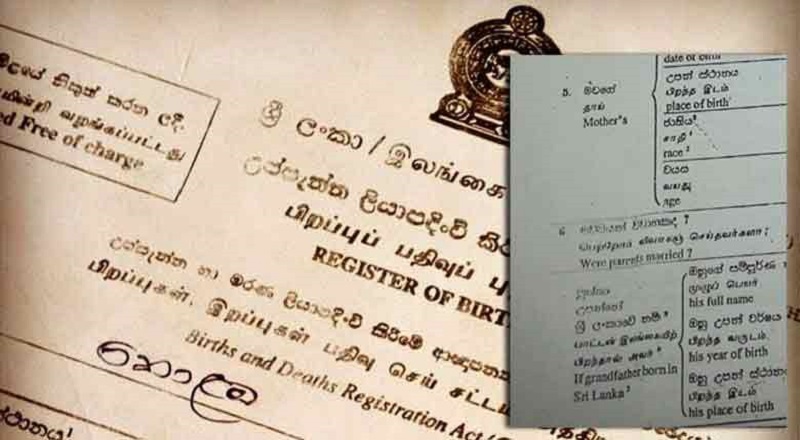 නොමිලයේ නිකුත් කරන ලදී
வழங்கப்பட்டது
ed Free of charge
ශ්‍රී ලංකා / இலங்கை
උප්පැන්න ලියාපදිංචි කිරී
பிறப்புப் பதிவுப் பு
REGISTER OF BIRT
උප්පැන්න හා මරණ ලියාපදිංචි කිරීමේ ආඥාපනත
பிறப்புகள், இறப்புகள் பதிவு செய் சட்டம்
Births and Deaths Registration Act
date of birth
5. මවගේ
தாய்
Mother's
උපන් ස්ථානය
பிறந்த இடம்
place of birth
ජාතිය
சாதி
race
වයස
வயது
Age
6
பெற்றோர் விவாகஞ் செய்தவர்களா?
Were parents married ?
ශ්‍රී ලංකාවේ නම්
பாட்டன் இலங்கையிற்
பிறந்தால் அவர்
If grandfather born in
Sri Lanka
ඔහුගේ සම්පූර්ණ
முழுப் பெயர்
his full name
ඔහු උපන් වර්ෂය
பிறந்த வருடம்
his year of birth
ඔහු උපන් ස්ථාන
பிறந்த இடம்
his place of birth